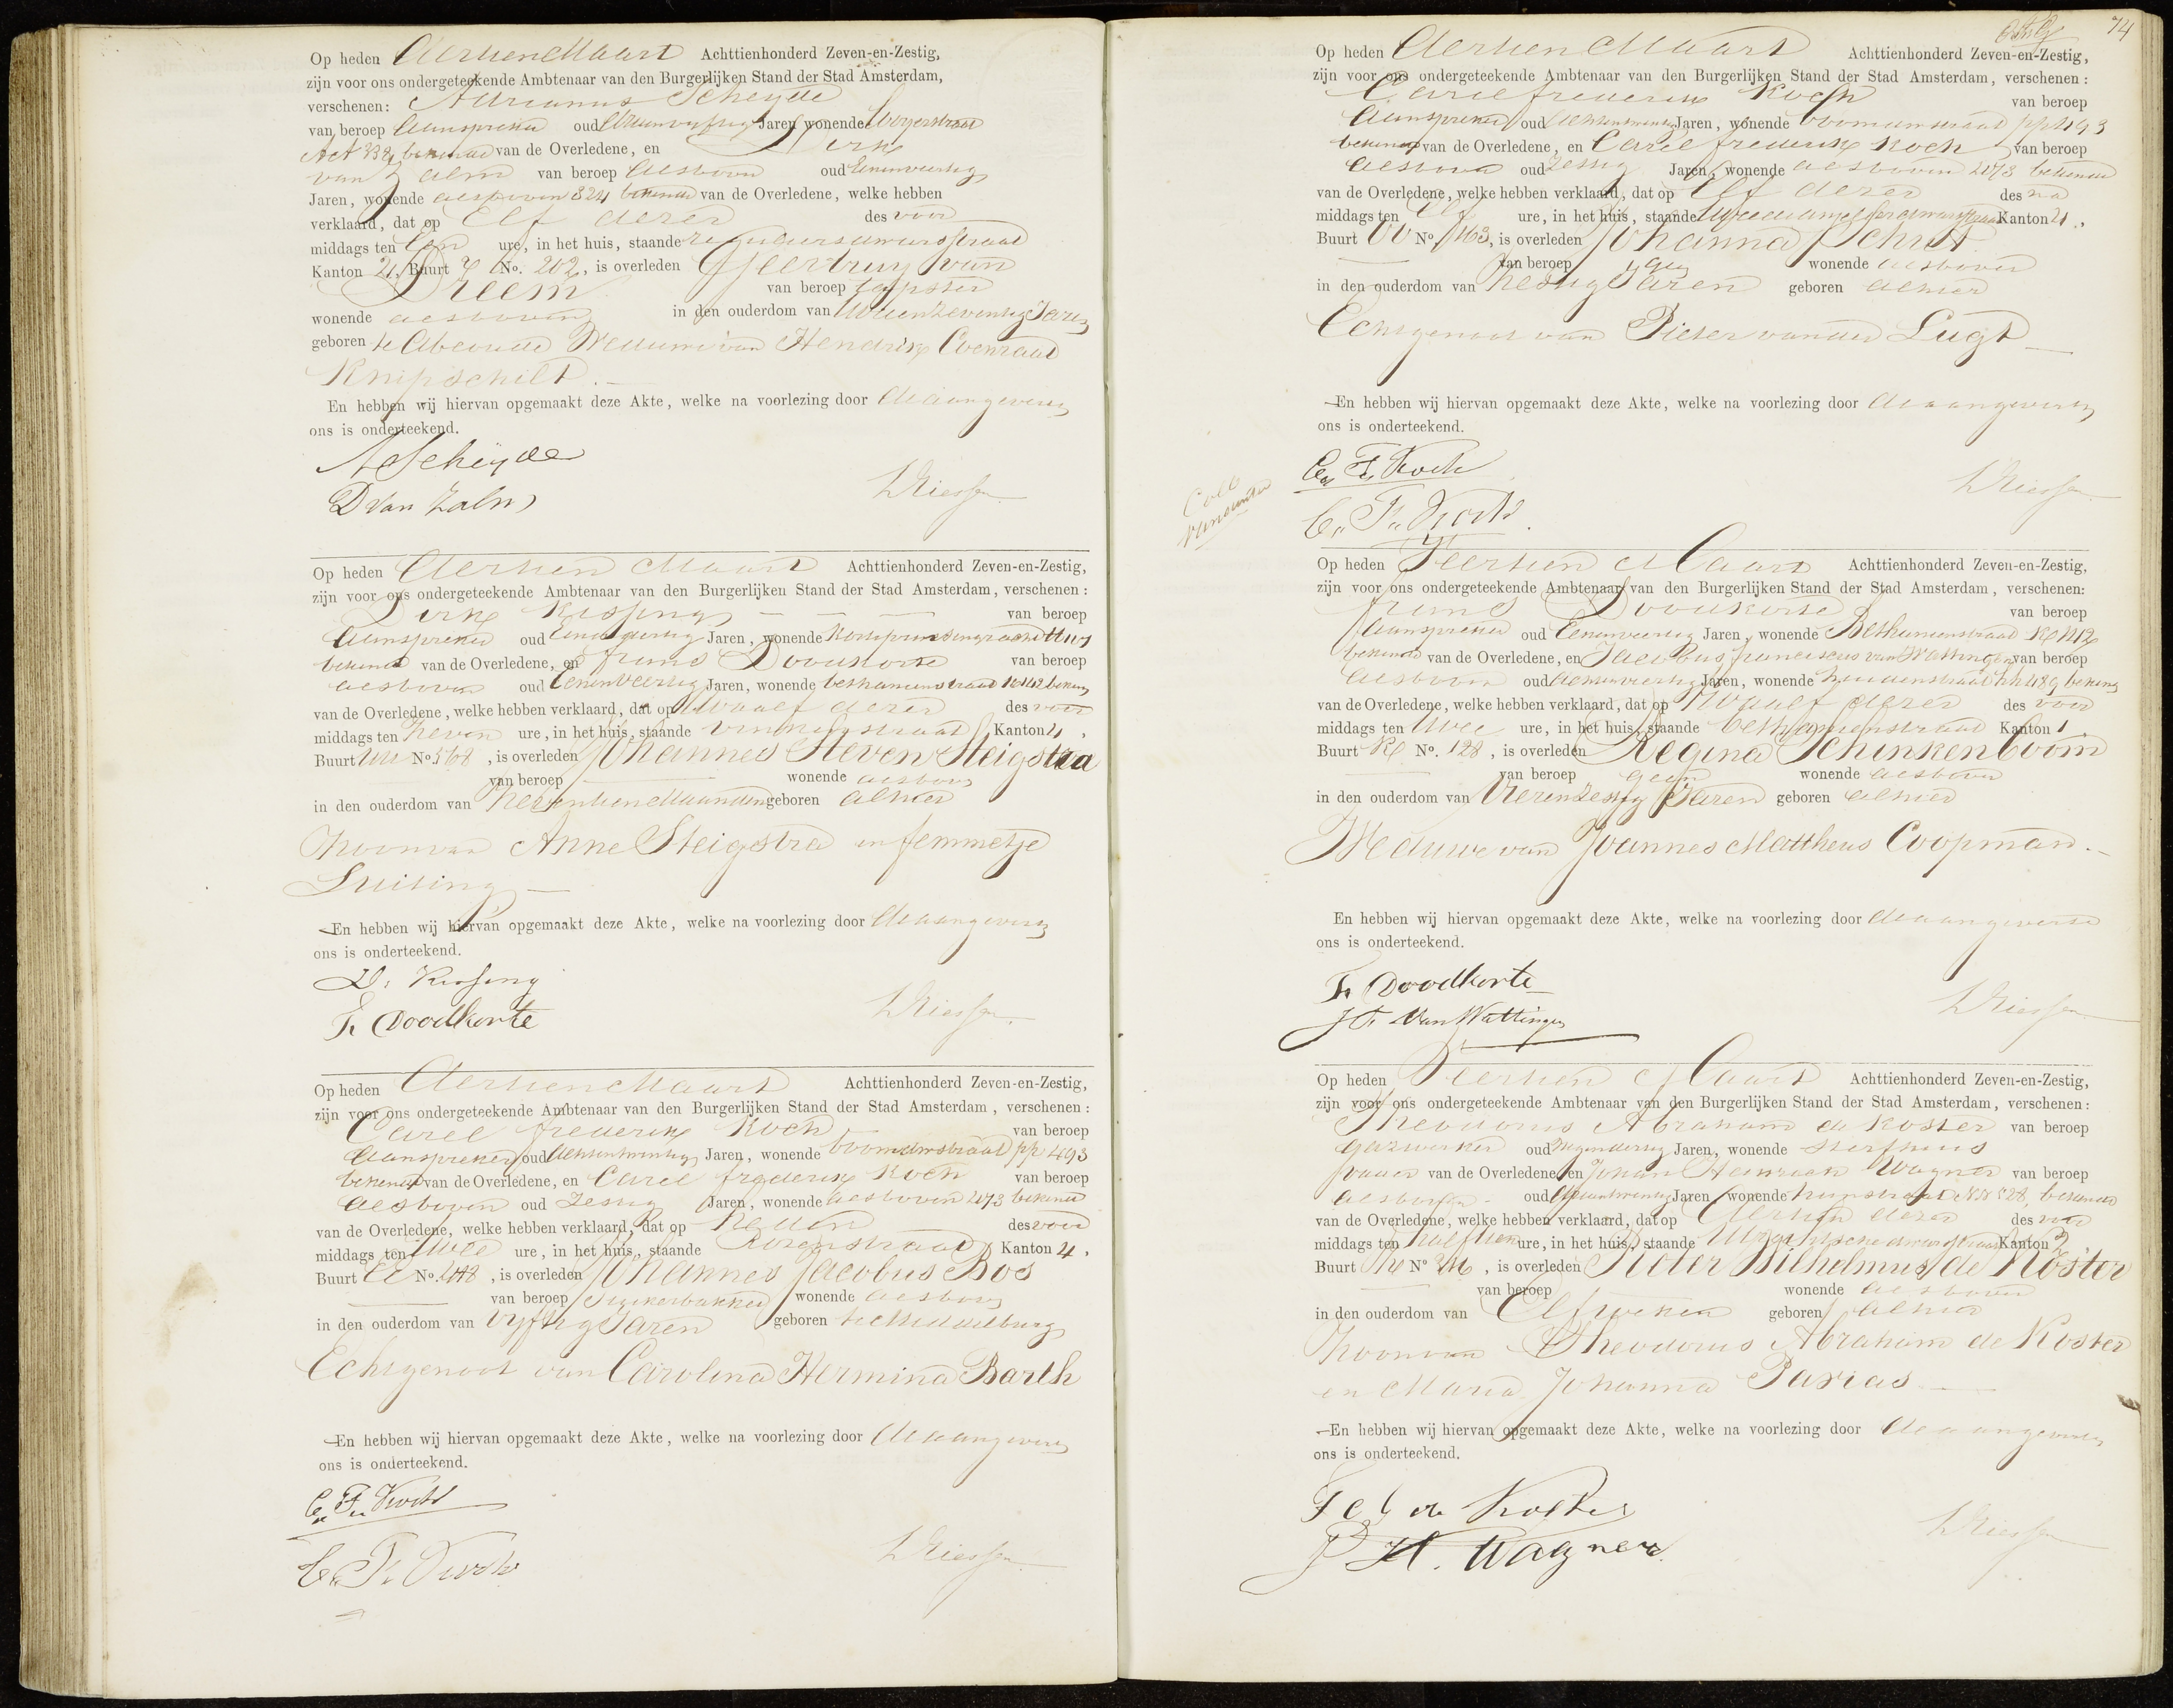 Op heden Dertien Maart Achttienhonderd Zeven-en-Zestig,
zijn voor ons ondergeteekende Ambtenaar van den Burgerlijken Stand der Stad Amsterdam,
verschenen: Adrianus Scheijde
van beroep Aanspreker oud Jaren wonende
bekende van de Overledene, en Dirk
van Zalm van beroep als boven oud Eenenveertig
Jaren, wonende als boven 324 bekende van de Overledene, welke hebben
verklaard, dat op Elf dezer des voor
middags ten Een ure, in het huis, staande Reguliersdwarsstraat
Kanton 2, Buurt No. 202, is overleden Geertruy van
Dreem van beroep
wonende als boven in den ouderdom van Jaren
geboren te Abcoude Weduwe van Hendrik Coenraad
Knipschilt.
En hebben wij hiervan opgemaakt deze Akte, welke na voorlezing door de aangevers
ons is onderteekend.
A Scheijde
D van Zalm
Op heden Dertien Maart Achttienhonderd Zeven-en-Zestig,
zijn voor ons ondergeteekende Ambtenaar van den Burgerlijken Stand der Stad Amsterdam, verschenen:
Dirk Kissing van beroep
Aanspreker oud Jaren, wonende
bekende van de Overledene, en Frans Doodkorte van beroep
als boven oud Eenenveertig Jaren, wonende Bethanienstraat
van de Overledene, welke hebben verklaard, dat op Twaalf dezer des voor
middags ten Zeven ure, in het huis, staande Vinkenstraat Kanton 4,
Buurt No 568, is overleden Johannes Steven Steigstra
van beroep wonende als boven
in den ouderdom van Zeventien Maanden geboren alhier
Zoon van Anne Steigstra en Jemmetje
Luiting
En hebben wij hiervan opgemaakt deze Akte, welke na voorlezing door de aangevers
ons is onderteekend.
D: Kissing
F. Doodkorte
Op heden Dertien Maart Achttienhonderd Zeven-en-Zestig,
zijn voor ons ondergeteekende Ambtenaar van den Burgerlijken Stand der Stad Amsterdam, verschenen:
Carel Frederik Koch van beroep
Aanspreker oud Achtentwintig Jaren, wonende Boomdwarsstraat pp 493
bekende van de Overledene, en Carel Frederik Koch van beroep
als boven oud Zestig Jaren, wonende als boven 2073 bekende
van de Overledene, welke hebben verklaard, dat op Heden des voor
middags ten Twee ure, in het huis, staande Rozenstraat Kanton 4,
Buurt No. is overleden Johannes Jacobus Bos
van beroep Suikerbakker wonende als boven
in den ouderdom van Vyftig Jaren geboren te Middelburg
Echtgenoot van Carolina Hermina Barth
En hebben wij hiervan opgemaakt deze Akte, welke na voorlezing door de aangevers
ons is onderteekend.
C. F. Koch
C. F. Koch
74
Op heden Dertien Maart Achttienhonderd Zeven-en-Zestig,
zijn voor ons ondergeteekende Ambtenaar van den Burgerlijken Stand der Stad Amsterdam, verschenen:
Carel Frederik Koch van beroep
Aanspreker oud Achtentwintig Jaren, wonende Boomdwarsstraat pp 493
bekende van de Overledene, en Carel Frederik Koch van beroep
als boven oud Zestig Jaren, wonende als boven 2073 bekende
van de Overledene, welke hebben verklaard, dat op Elf dezer des na
middags ten Elf ure, in het huis, staande Kanton 4,
Buurt No. is overleden Johanna Schut
van beroep geen wonende als boven
in den ouderdom van Zestig Jaren geboren alhier
Echtgenoot van Pieter van der Lugt
En hebben wij hiervan opgemaakt deze Akte, welke na voorlezing door de aangevers
ons is onderteekend.
C. F. Koch
C. F. Koch
Op heden Dertien Maart Achttienhonderd Zeven-en-Zestig,
zijn voor ons ondergeteekende Ambtenaar van den Burgerlijken Stand der Stad Amsterdam, verschenen:
Frans Doodkorte van beroep
Aanspreker oud Eenenveertig Jaren, wonende Bethanienstraat
bekende van de Overledene, en Jacobus Franciscus van Wattingen van beroep
als boven oud Jaren, wonende
van de Overledene, welke hebben verklaard, dat op Twaalf dezer des voor
middags ten Twee ure, in het huis, staande Bethanienstraat Kanton 1
Buurt No. 128, is overleden Regina Schinkenboom
van beroep geen wonende als boven
in den ouderdom van Vierenzestig Jaren geboren alhier
Weduwe van Joannes Mattheus Coopman.
En hebben wij hiervan opgemaakt deze Akte, welke na voorlezing door de aangevers
ons is onderteekend.
F. Doodkorte
J. F. van Wattingen
Op heden Dertien Maart Achttienhonderd Zeven-en-Zestig,
zijn voor ons ondergeteekende Ambtenaar van den Burgerlijken Stand der Stad Amsterdam, verschenen:
Theodorus Abraham de Koster van beroep
Gazwerker oud Jaren, wonende Sterfhuis
vader van de Overledene, en Johan Wagner van beroep
als boven oud Jaren wonende bekende
van de Overledene, welke hebben verklaard, dat op Dertien dezer des voor
middags ten ure, in het huis, staande Kanton 2
Buurt No is overleden Pieter Wilhelmus de Koster
van beroep wonende als boven
in den ouderdom van Elf weken geboren alhier
Zoon van Theodorus Abraham de Koster
en Maria Johanna Parias
En hebben wij hiervan opgemaakt deze Akte, welke na voorlezing door de aangevers
ons is onderteekend.
de Koster
J H. Wagner